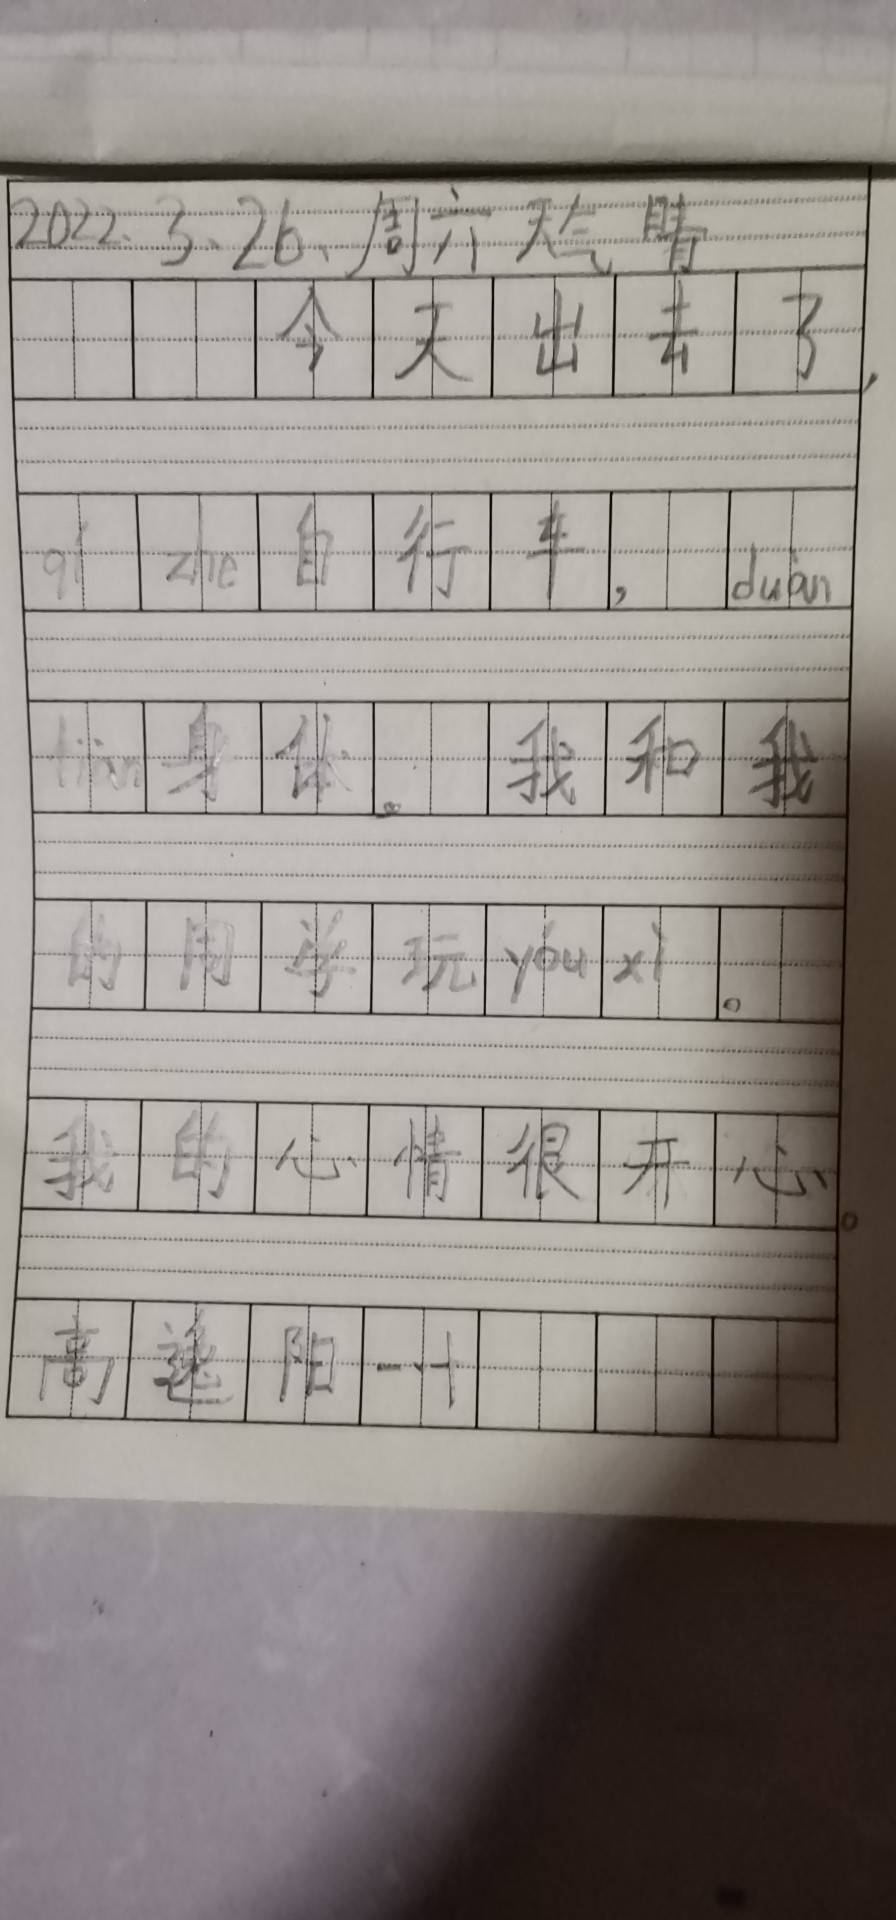 2022.3.26.周六天气晴
今天出去了,
qí zhe自行车,duàn
liàn身体。我和我
的同学玩yóu xì。
我的心情很开心。
高逸阳